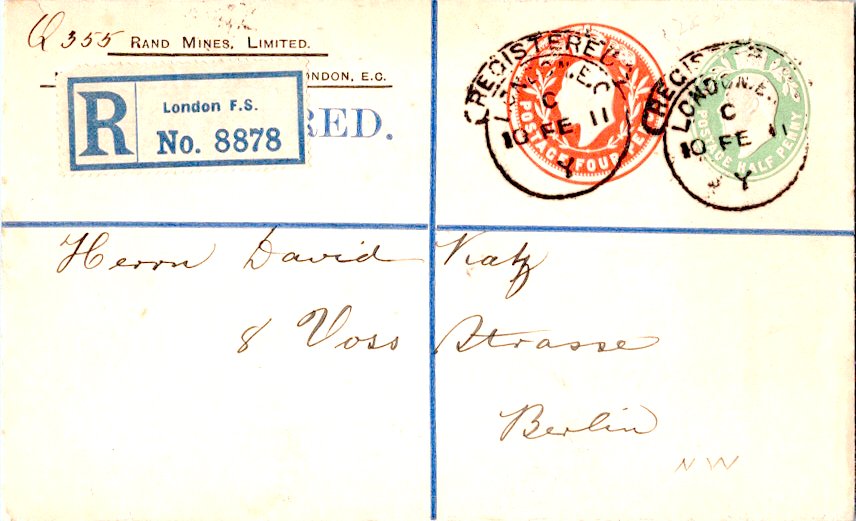 Q 355 RAND MINES, LIMITED.
LONDON, E.C.
R
London F.S.
No. 8878
RED.
REGISTERED
LONDON.E.C
C
10 FE 11
Y
POSTAGE FOUR PE
REGISTERED
LONDON.E.
C
10 FE 11
Y
POSTAGE HALF PENNY
Herrn David Katz
8 Voss Strasse
Berlin
NW